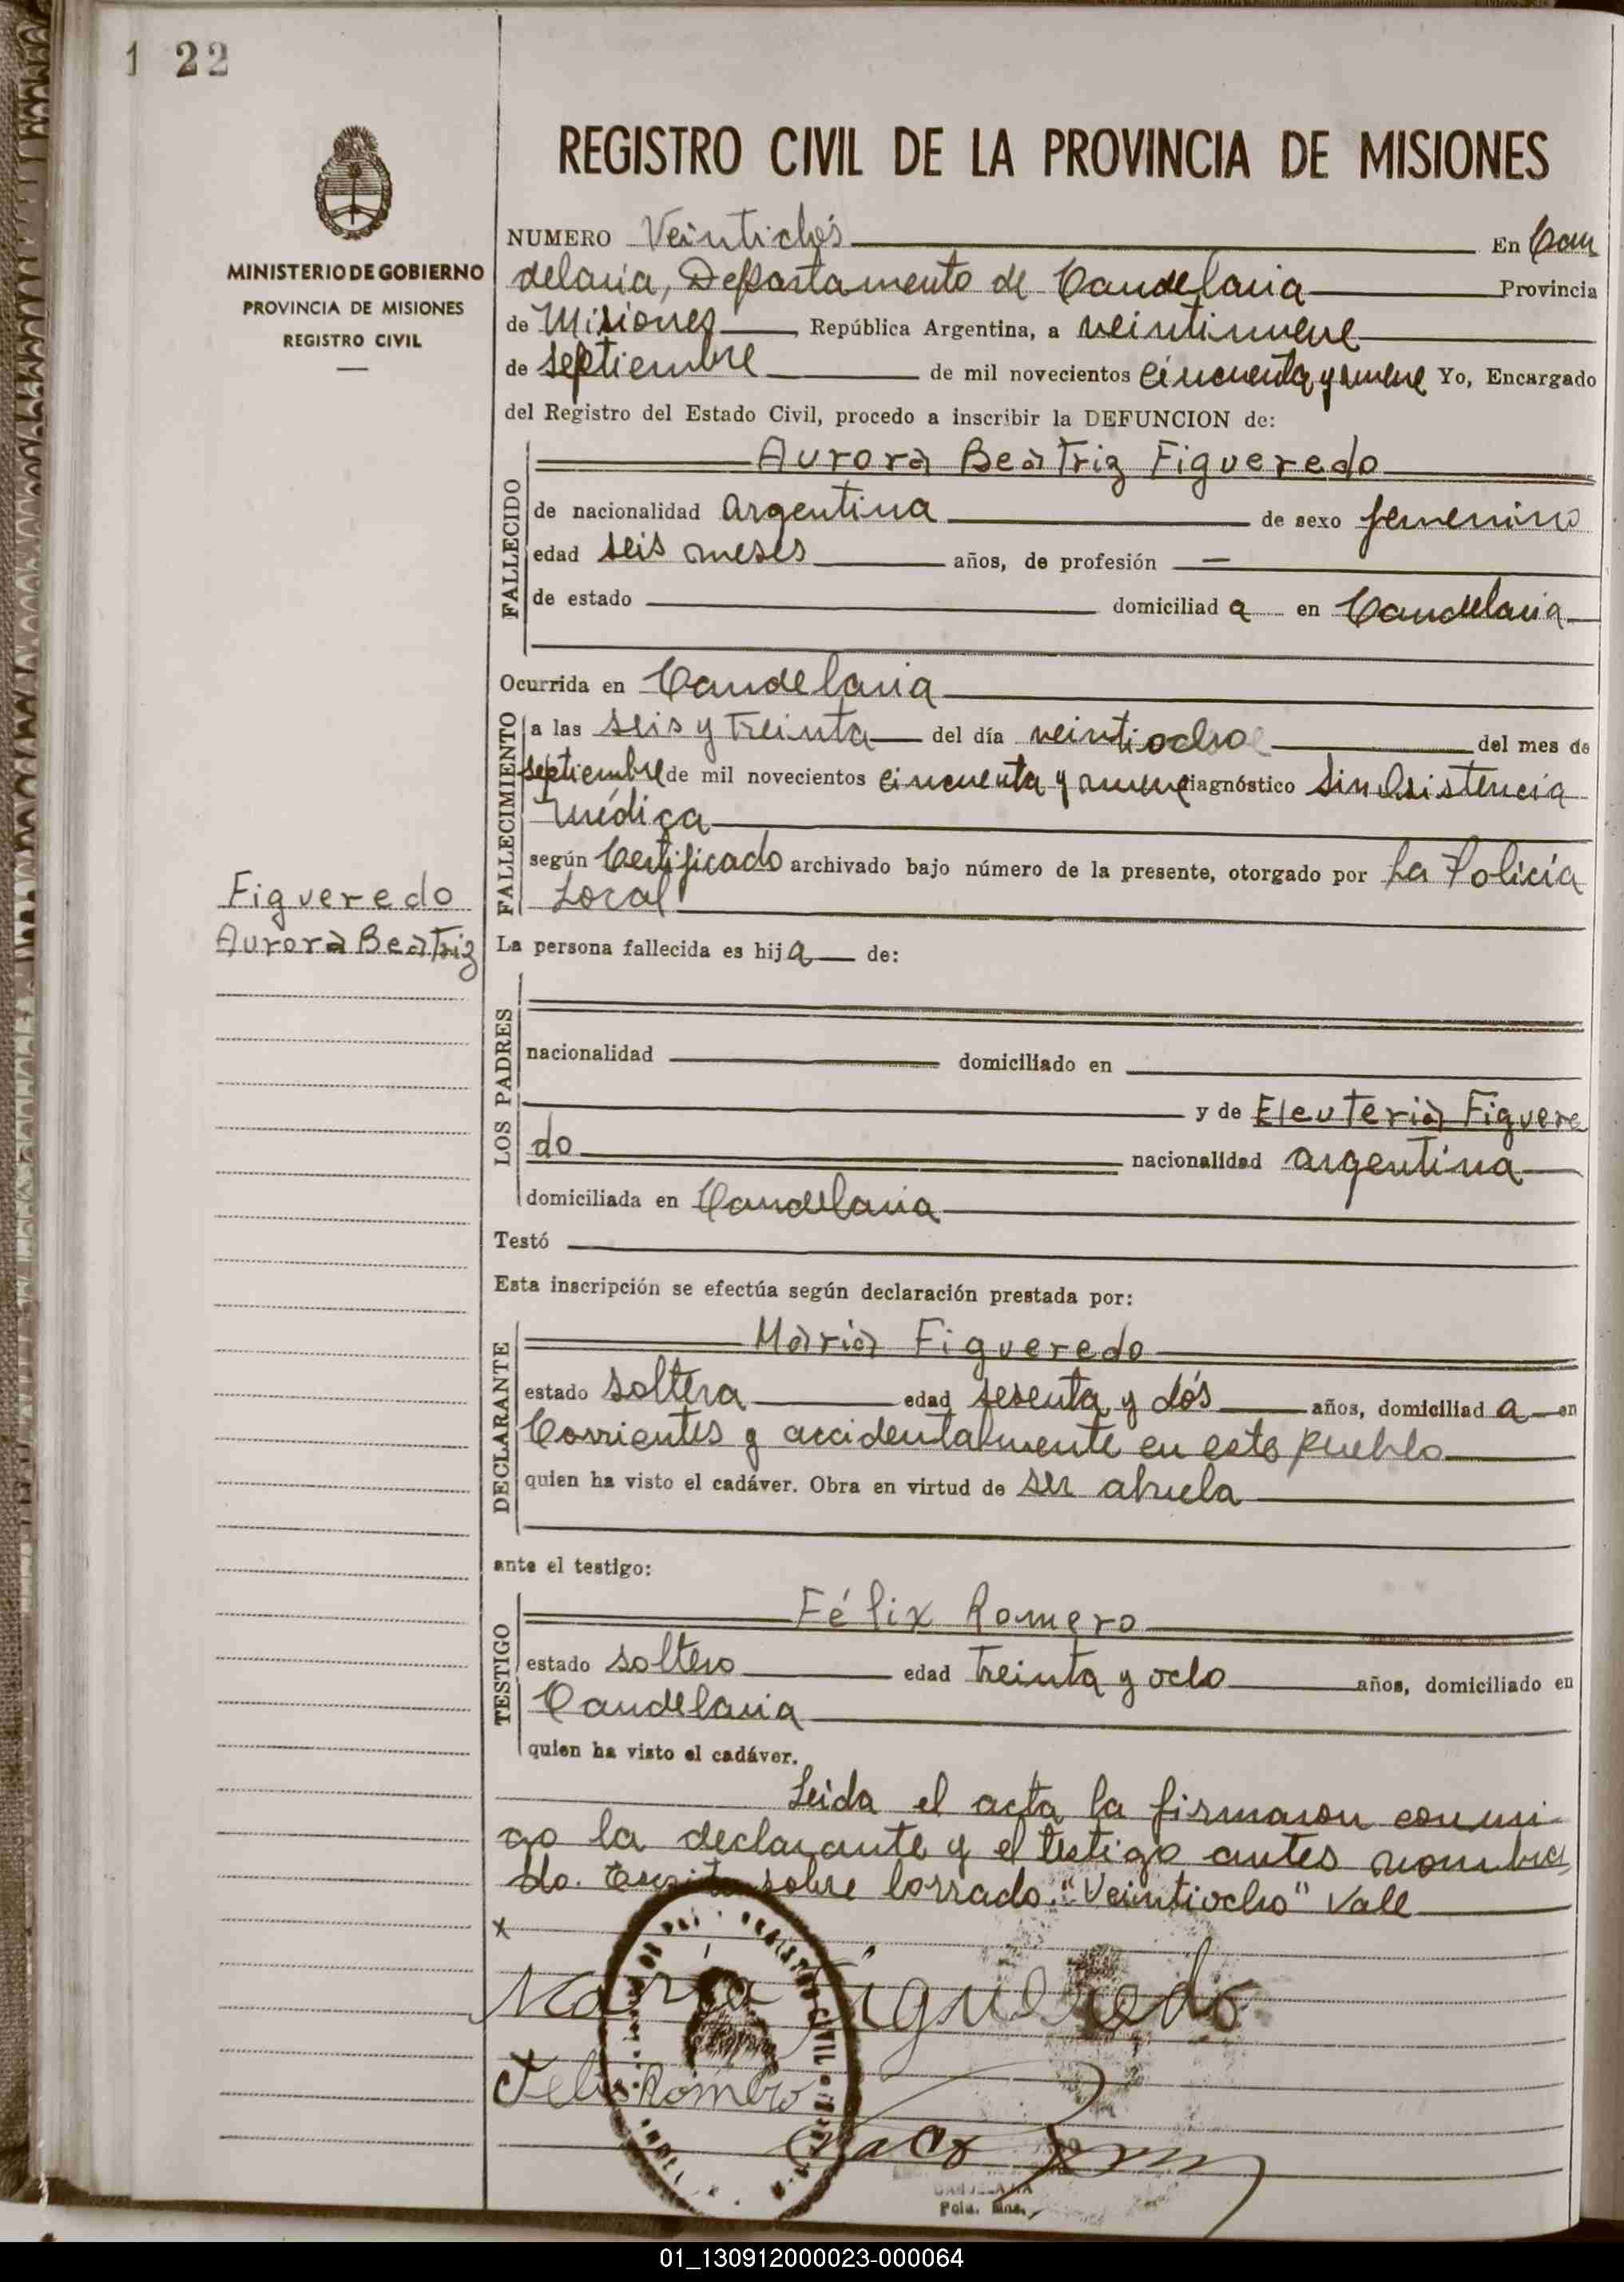 1 22
REGISTRO CIVIL DE LA PROVINCIA DE MISIONES
MINISTERIO DE GOBIERNO
PROVINCIA DE MISIONES
REGISTRO CIVIL
NUMERO Veintidós En Can
delaria, Departamento de Candelaria Provincia
de Misiones, República Argentina, a veintinueve
de septiembre de mil novecientos cincuenta y nueve Yo, Encargado
del Registro del Estado Civil, procedo a inscribir la DEFUNCION de:
FALLECIDO
Aurora Beatriz Figueredo
de nacionalidad argentina de sexo femenino
edad seis meses años, de profesión —
de estado domiciliad a en Candelaria
Ocurrida en Candelaria
FALLECIMIENTO
a las seis y treinta del día veintiocho del mes de
septiembre de mil novecientos cincuenta y nueve diagnóstico Sin Asistencia
Médica
según Certificado archivado bajo número de la presente, otorgado por La Policía
Local
Figueredo
Aurora Beatriz
La persona fallecida es hija de:
LOS PADRES
nacionalidad domiciliado en
y de Eleuteria Figuere
do nacionalidad argentina
domiciliada en Candelaria
Testó
Esta inscripción se efectúa según declaración prestada por:
DECLARANTE
Maria Figueredo
estado soltera edad sesenta y dós años, domiciliad a en
Corrientes y accidentalmente en este pueblo
quien ha visto el cadáver. Obra en virtud de ser abuela
ante el testigo:
TESTIGO
Félix Romero
estado soltero edad treinta y ocho años, domiciliado en
Candelaria
quien ha visto el cadáver.
Leida el acta la firmaron conmi
go la declarante y el testigo antes nombra
do. Escrito sobre borrado: "Veintiocho" Vale
x
Maria Figueredo
Felix Romero
CANDELARIA
Pcia. Mnes.
01_130912000023-000064